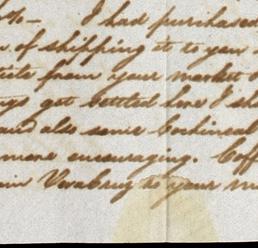 % - I had purchased
of shipping it to you
from your market
get settled here I sh
and also some Cochineal
more encouraging. Coff
in Veracruz to your m